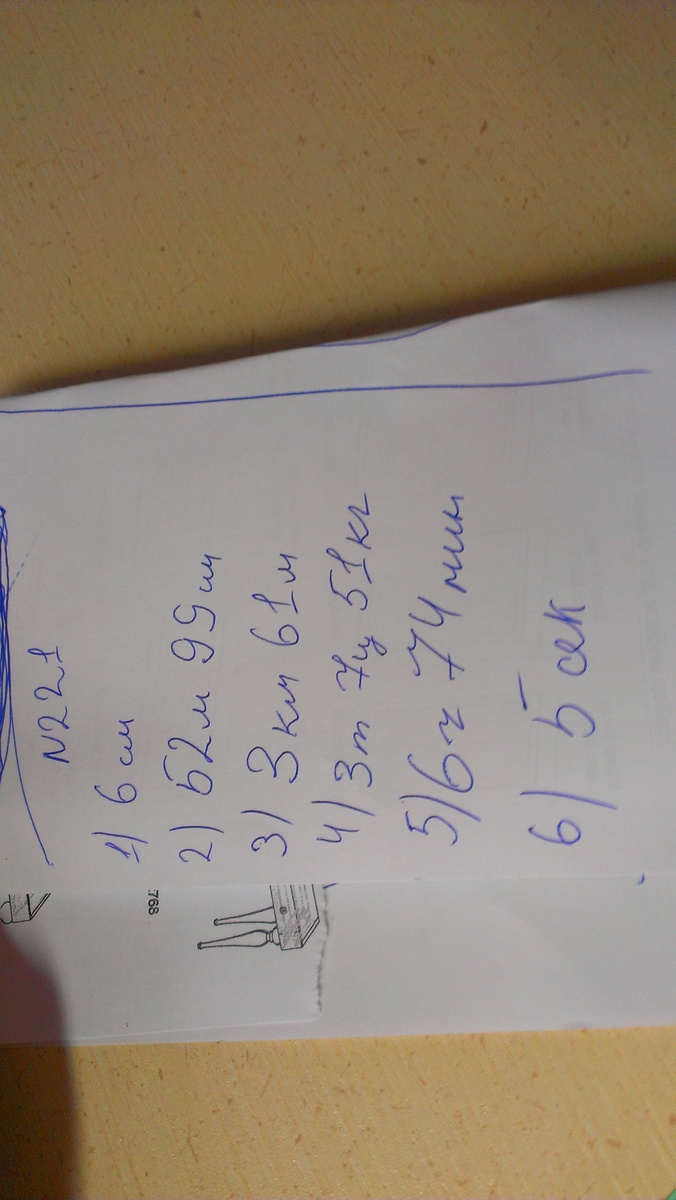 N221
1) 6 см
2) 52м 99см
3) 3км 61м
4) 3т 7ц 51кг
5) 6ч 74мин
6) 5 сек
768